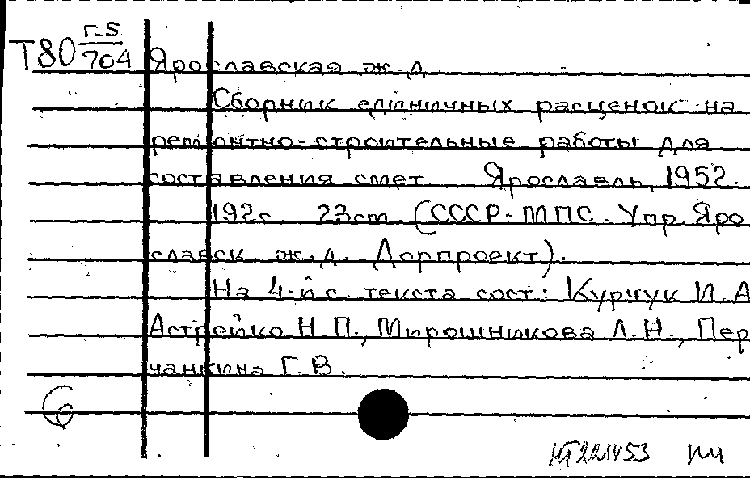 Г-5
Т80 704 Ярославская ж.д.
Сборник единичных расценок на
ремонтно-строительные работы для
составления смет Ярославль, 1952.
192с. 23см. (СССР-МПС. Упр. Яро
славск ж.д. Дорпроект).
На 4-й с. текста сост.: Курчук И.А
Астрейко Н.П., Мирошникова Л.Н., Пер
чанкина Г.В.